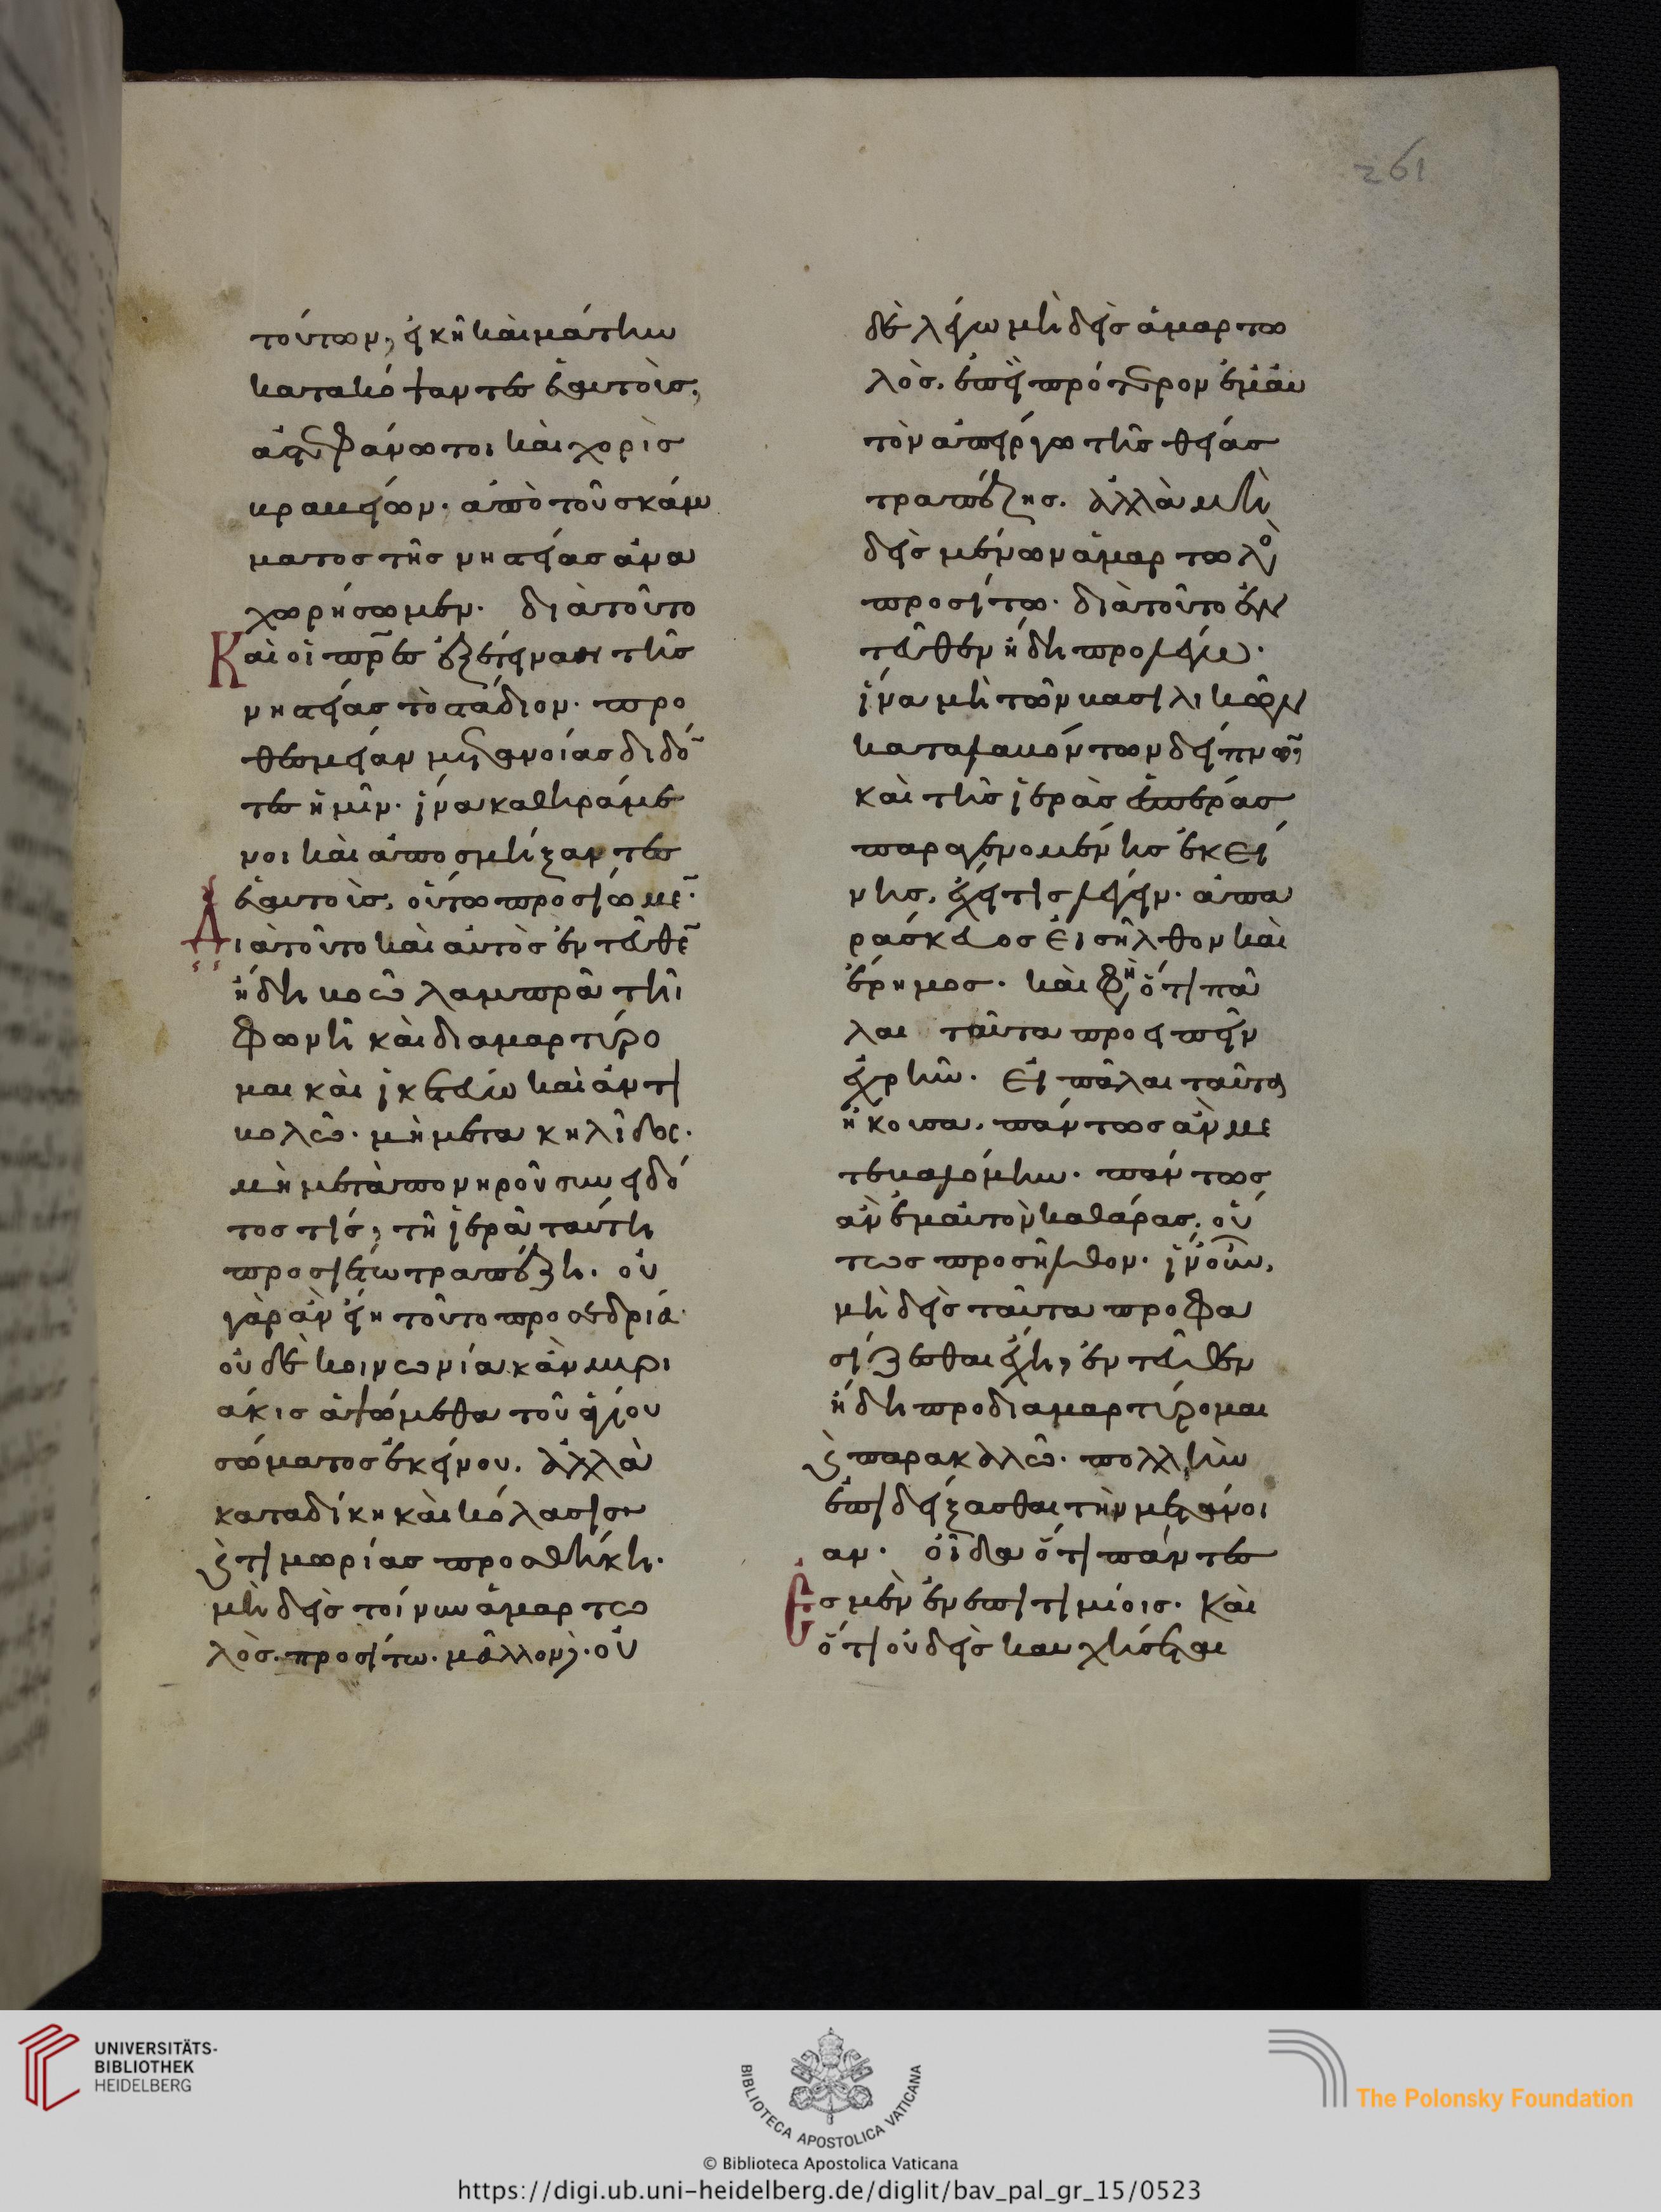 261
τούτων, εἰκῆ καὶ μάτην
κατακόψαντες ἑαυτοὺς,
ἀστεφάνωτοι καὶ χορὶς
κραυείων. ἀπὸ τοῦ σκάμ
ματος τῆς νηστείας ἀνα
χωρήσωμεν. διὰ τοῦτο
Καὶ οἱ πρ̅ες ἐξέτειναν τῆς
νηστείας τὸ στάδιον. προ
θεσμείαν μετανοίας διδό
τες ἡμῖν. ἵνα καθηράμε
νοι καὶ ἀποσμήξαντες
ἑαυτοὺς, οὕτω προσίωμε̅.
Διὰ τοῦτο καὶ αὐτὸς ἐντεῦθε̅
ἤδη βοῶ λαμπρᾶ τῆ
φωνῆ καὶ διαμαρτύρο
μαι καὶ ἱκετεύω καὶ ἀντι
βολῶ. μὴ μετα κηλῖδος.
μὴ μετὰ πονηροῦ συνειδό
τος τίς, τῆ ἱερᾶ ταύτη
προσιέτω τραπέζη. οὐ
γὰρ ἂν εἴη τοῦτο προσεδρία.
οὐδὲ κοινωνία κἂν μυρι
άκις ἁψώμεθα τοῦ ἁγίου
σώματος ἐκείνου. ἀλλὰ
καταδίκη καὶ κόλασις
ϗ τιμωρίας προσθήκη.
μηδεὶς τοίνυν ἁμαρτω
λὸς προσίτω. μᾶλλον δ. οὐ
δὲ λέγω μηδεὶς ἁμαρτω
λὸς. ἐπεὶ πρότερον ἐμαυ
τὸν ἀπείργω τῆς θείας
τραπέζης. ἀλλὰ μη
δεὶς μένων ἁμαρτωλὸ
προσίτω. διὰ τοῦτο ἐν
τεῦθεν ἤδη προλέγω.
ἵνα μὴ τῶν βασιλικῶν
καταλαβόντων δείπνων
καὶ τῆς ἱερᾶς ἑσπέρας
παραγενομένης ἐκεί
νης, ἔχει τις λέγειν. ἀπα
ράσκευος εἰσῆλθον καὶ
ἔρημος. καὶ φη, ὅτι πά
λαι ταῦτα προειπεῖν
ἐχρῆν. Εἰ πάλαι ταῦτα
ἤκουσα. πάντως ἂν με
τεβαλόμην. πάντως
ἂν ἐμαυτὸν καθάρας, οὕ
τως προσῆλθον. ἵν' οὖν,
μηδεὶς ταῦτα προφα
σίζεσθαι ἔχη, ἐντεῦθεν
ἤδη προδιαμαρτύρομαι
ϗ παρακαλῶ. πολλὴν
ἐπιδείξασθαι τὴν μετάνοι
αν. οἶδα ὅτι πάντες
Ἐσμὲν ἐν ἐπιτιμίοις. Καὶ
ὅτι οὐδεὶς καυχήσεται
UNIVERSITÄTS-
BIBLIOTHEK
HEIDELBERG
BIBLIOTECA APOSTOLICA VATICANA
The Polonsky Foundation
© Biblioteca Apostolica Vaticana
https://digi.ub.uni-heidelberg.de/diglit/bav_pal_gr_15/0523